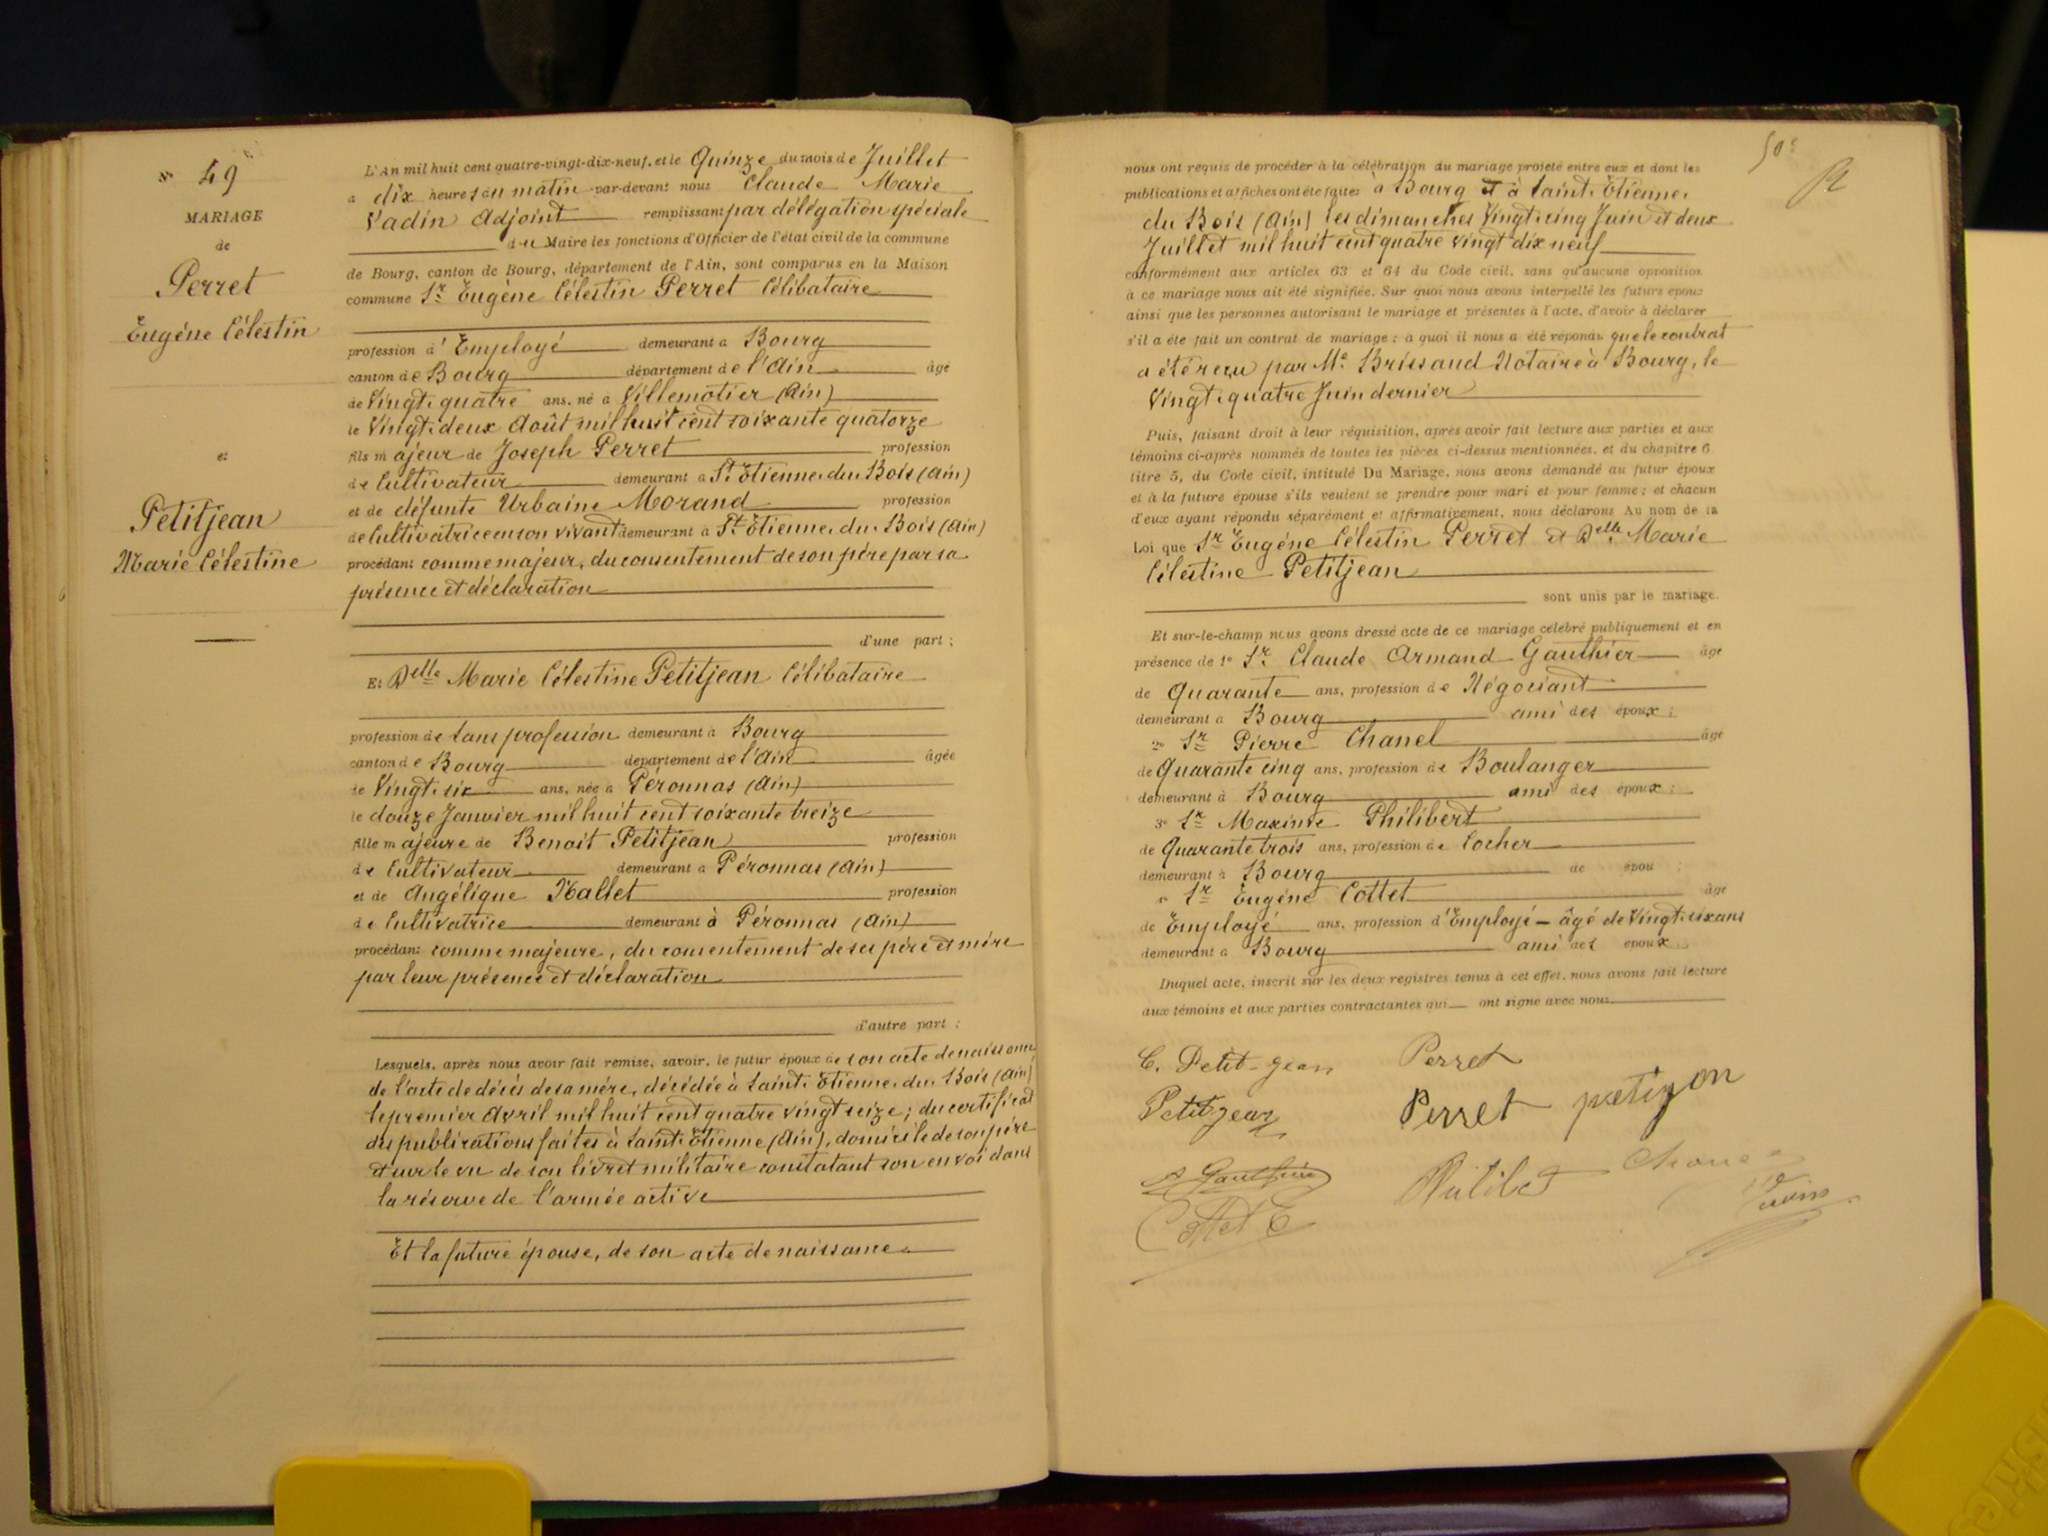 N° 49
MARIAGE
de
Perret
Eugène Célestin
et
Petitjean
Marie Célestine
L'An mil huit cent quatre-vingt-dix-neuf, et le Quinze du mois de Juillet
à dix heures du matin par-devant nous Claude Marie
Vadin Adjoint remplissant par délégation spéciale
du Maire les fonctions d'Officier de l'état civil de la commune
de Bourg, canton de Bourg, département de l'Ain, sont comparus en la Maison
commune Sr Eugène Célestin Perret Célibataire
profession d'Employé demeurant à Bourg
canton de Bourg département de l'Ain âgé
de Vingt-quatre ans, né à Villemotier (Ain)
le Vingt-deux Août mil huit cent soixante quatorze
fils majeur de Joseph Perret profession
de Cultivateur demeurant à St Etienne-du-Bois (Ain)
et de défunte Urbaine Morand profession
de Cultivatrice en son vivant demeurant à St Etienne-du-Bois (Ain)
procédant comme majeur, du consentement de son père par sa
présence et déclaration
d'une part ;
Et Delle Marie Célestine Petitjean Célibataire
profession de Sans profession demeurant à Bourg
canton de Bourg département de l'Ain âgée
de Vingt-six ans, née à Péronnas (Ain)
le douze Janvier mil huit cent soixante treize
fille majeure de Benoit Petitjean profession
de Cultivateur demeurant à Péronnas (Ain)
et de Angélique Hallet profession
de Cultivatrice demeurant à Péronnas (Ain)
procédant comme majeure, du consentement de ses père et mère
par leur présence et déclaration
d'autre part ;
Lesquels, après nous avoir fait remise, savoir, le futur époux de son acte de naissance
de l'acte de décès de sa mère, décédée à Saint-Etienne-du-Bois (Ain)
le premier Avril mil huit cent quatre vingt seize ; du certificat
des publications faites à Saint-Etienne (Ain), domicile de son père
et sur le vu de son livret militaire constatant son envoi dans
la réserve de l'armée active
Et la future épouse, de son acte de naissance.
50e
nous ont requis de procéder à la célébration du mariage projeté entre eux et dont les
publications et affiches ont été faites à Bourg et à Saint-Etienne-
du Bois (Ain) les dimanches Vingt-cinq Juin et deux
Juillet mil huit cent quatre vingt dix neuf
conformément aux articles 63 et 64 du Code civil, sans qu'aucune opposition
à ce mariage nous ait été signifiée. Sur quoi nous avons interpellé les futurs époux
ainsi que les personnes autorisant le mariage et présentes à l'acte, d'avoir à déclarer
s'il a été fait un contrat de mariage ; à quoi il nous a été répondu que le contrat
a été reçu par Me Brissaud Notaire à Bourg, le
Vingt-quatre Juin dernier
Puis, faisant droit à leur réquisition, après avoir fait lecture aux parties et aux
témoins ci-après nommés de toutes les pièces ci-dessus mentionnées, et du chapitre 6
titre 5, du Code civil, intitulé Du Mariage, nous avons demandé au futur époux
et à la future épouse s'ils veulent se prendre pour mari et pour femme ; et chacun
d'eux ayant répondu séparément et affirmativement, nous déclarons Au nom de la
Loi que Sr Eugène Célestin Perret et Delle Marie
Célestine Petitjean
sont unis par le mariage.
Et sur-le-champ nous avons dressé acte de ce mariage célébré publiquement et en
présence de 1° Sr Claude Armand Gauthier âgé
de Quarante ans, profession de Négociant
demeurant à Bourg ami des époux ;
2° Sr Pierre Chanel âgé
de Quarante cinq ans, profession de Boulanger
demeurant à Bourg ami des époux ;
3° Sr Maxime Philibert
de Quarante trois ans, profession de Cocher
demeurant à Bourg de épou ;
Sr Eugène Cottet âgé
de Employé ans, profession d'Employé - âgé de Vingt-six ans
demeurant à Bourg ami des époux.
Duquel acte, inscrit sur les deux registres tenus à cet effet, nous avons fait lecture
aux témoins et aux parties contractantes qui ont signé avec nous.
C. Petit-jean Perret
Petitjean Perret petijon
A Gauthier Philibert
Cottet E